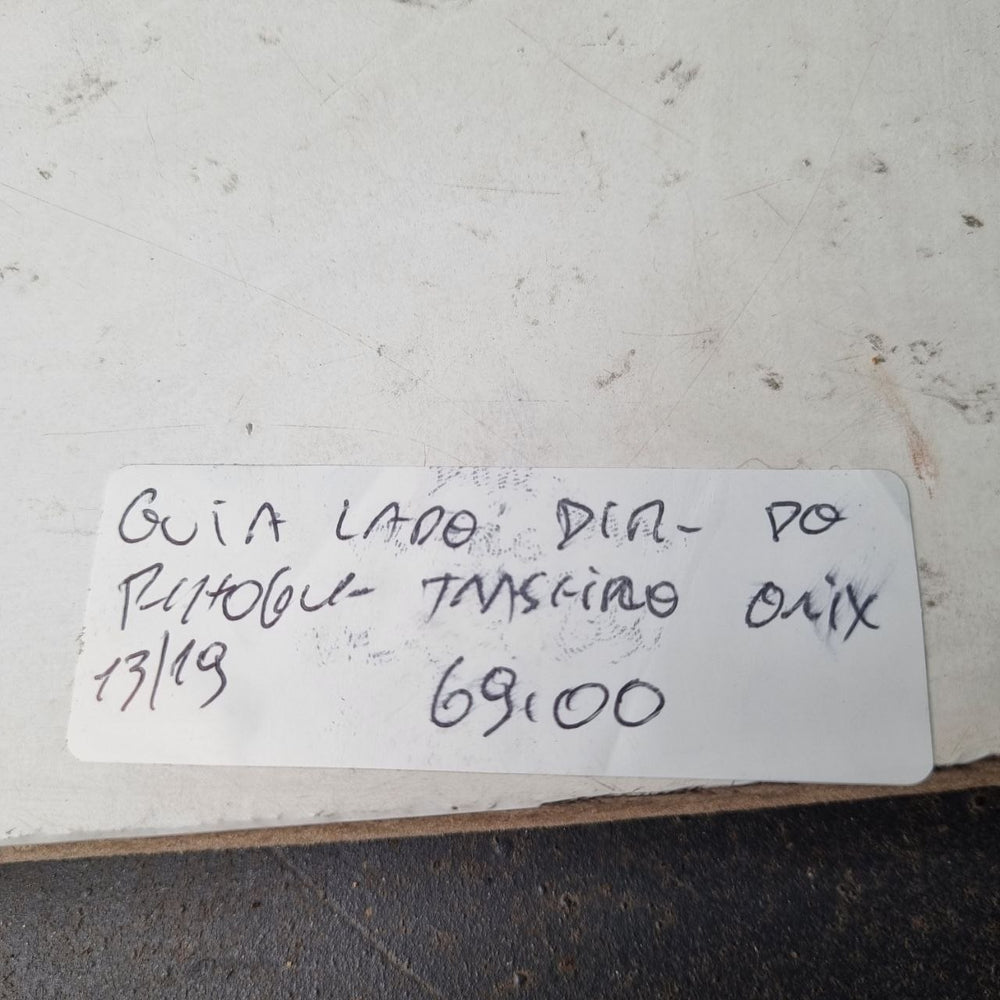 GUIA LADO DIR- DO
PACHOQU- TRASEIRO ONIX
13/19 69,00